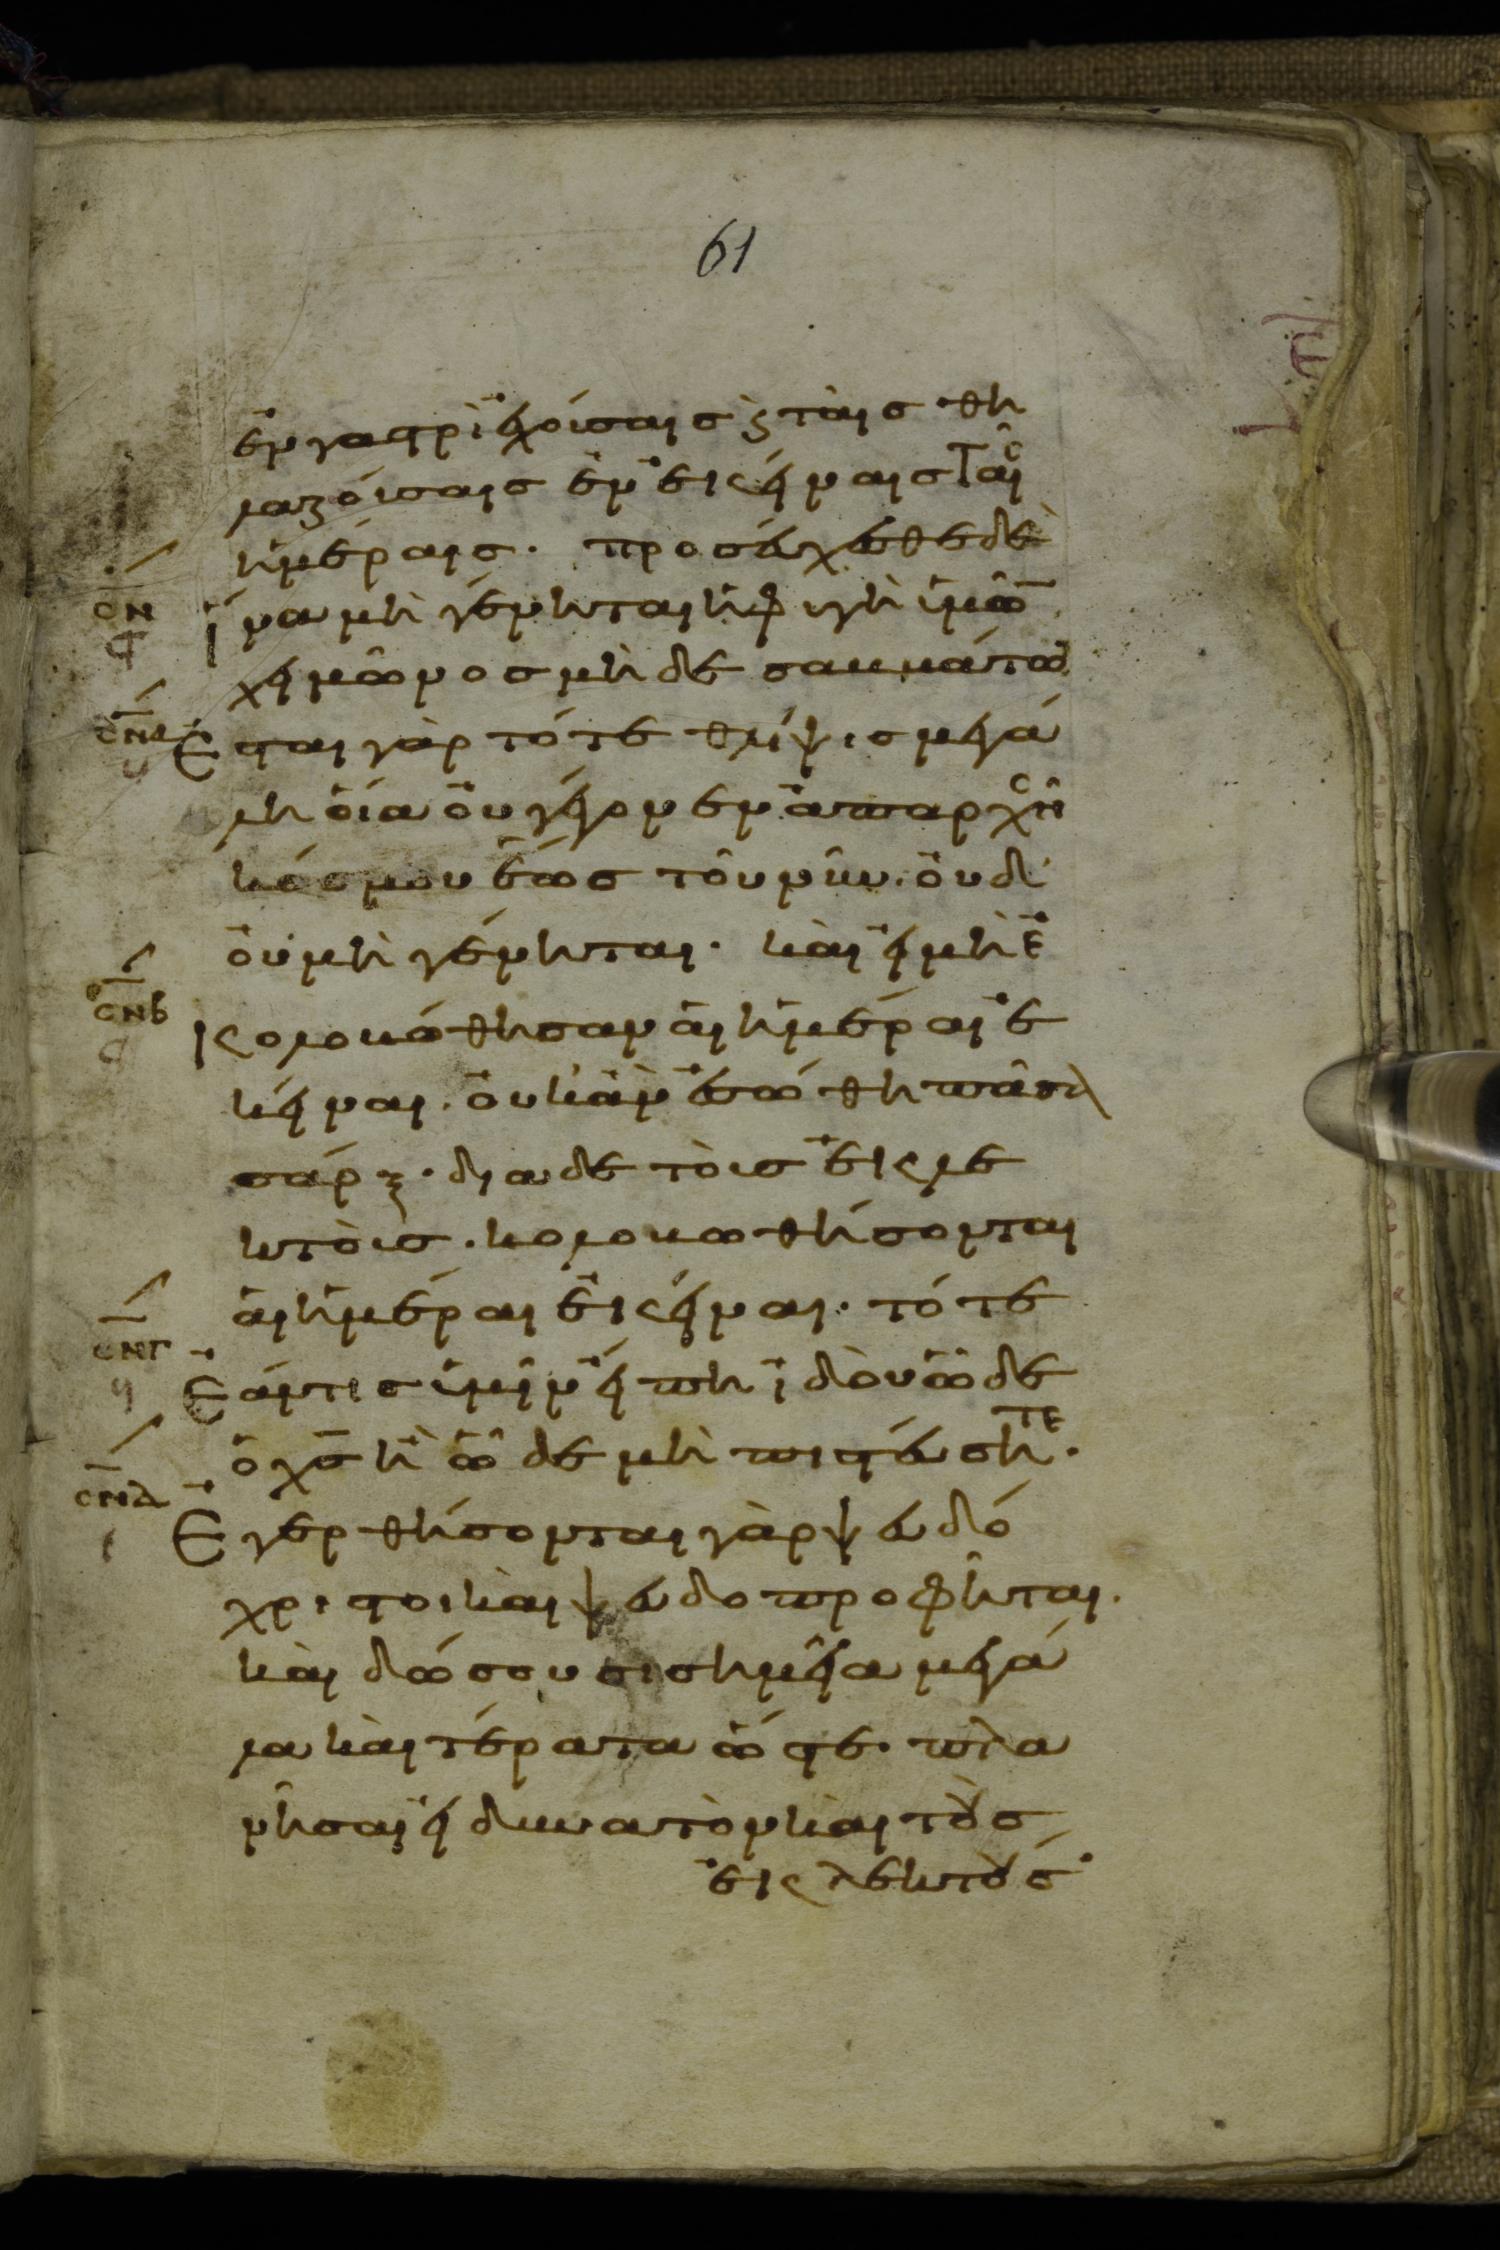 61
ἐν γαστρὶ ἐχόυσαις ϗ ταις θη
λαζόυσαις ἐν ἐκείναις ταῖς
ἡμέραις. προσέυχεσθε δὲ
ἵνα μὴ γένηται ἡ φυγὴ ἡμῶν
χειμῶνος μὴ δε σαββάτω
Εσται γὰρ τότε θλίψις μεγά
λη ὅια ὀυ γέγονεν ἀπαρχῆς
κόσμου ἕως τοῦ νῦν. ὀυδ
ὀυ μὴ γένηται. καὶ εἰ μὴ ἐ
κολοβώθησαν ἁι ἡμέραι ἐ
κείναι. ὀυκ ἀν ἐσώθη πᾶσα
σάρξ. δια δε τὸυς ἐκλε
κτὸυς. κολοβωθήσονται
ἁι ἡμέραι ἐκείναι. τότε
Εάν τις ὑμῖν εἴπη ἰδὸυ ὧδε
ὁ χς ἢ ὧδε μὴ πιστέυσητε.
Εγερθήσονται γὰρ ψευδό
χριστοι καὶ ψευδοπροφῆται.
καὶ δώσουσι σημεῖα μεγά
λα καὶ τέρατα ὥστε. πλα
νῆσαι εἰ δυνατὸν καὶ τοὺς
ἐκλεκτούς
σν
σνα
σνβ
σνγ
σνδ